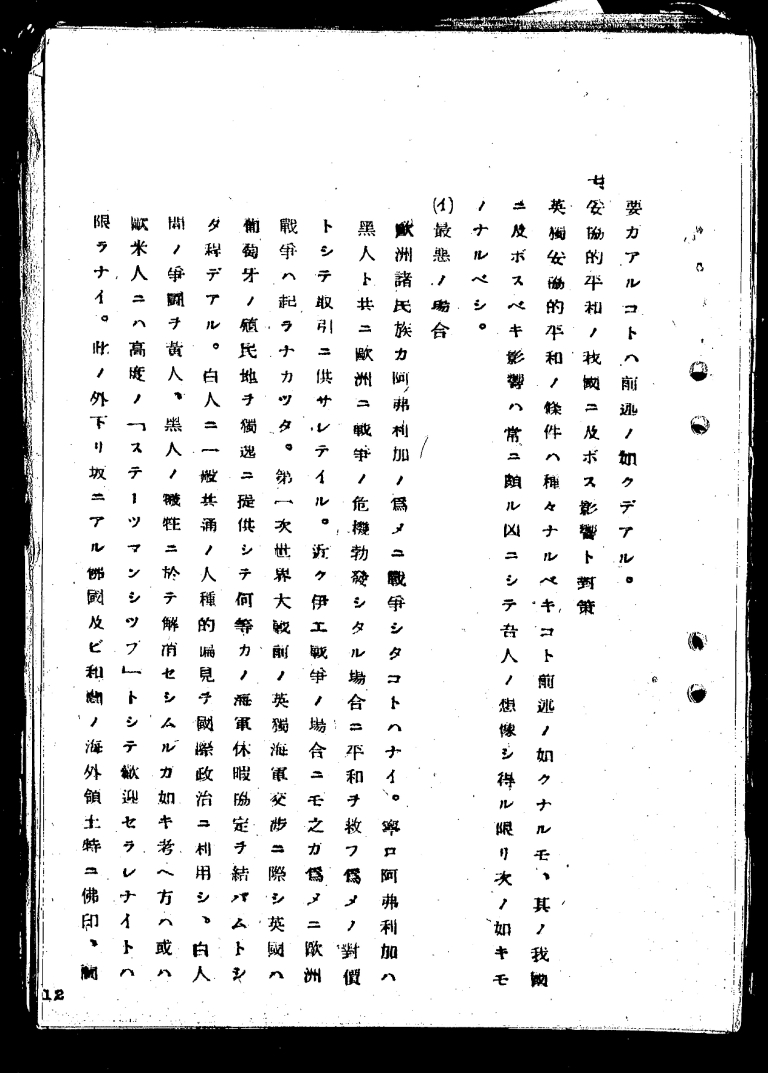 要カアルコトハ前述ノ如クデアル。
七、妥協的平和ノ我國ニ及ボス影響ト對策
英獨妥協的平和ノ條件ハ種々ナルベキコト前述ノ如クナルモ、其ノ我國
ニ及ボスベキ影響ハ常ニ頗ル凶ニシテ吾人ノ想像シ得ル限リ次ノ如キモ
ノナルベシ。
(イ)最悪ノ場合
歐洲諸民族カ阿弗利加ノ爲メニ戰爭シタコトハナイ。寧ロ阿弗利加ハ
黑人ト共ニ歐洲ニ戰爭ノ危機勃發シタル場合ニ平和ヲ救フ爲メノ對價
トシテ取引ニ供サレテイル。近ク伊エ戰爭ノ場合ニモ之ガ爲メニ歐洲
戰爭ハ起ラナカツタ。第一次世界大戰前ノ英獨海軍交渉ニ際シ英國ハ
葡萄牙ノ殖民地ヲ獨逸ニ提供シテ何等カノ海軍休暇協定ヲ結バムトシ
タ程デアル。白人ニ一般共通ノ人種的偏見ヲ國際政治ニ利用シ、白人
間ノ爭鬪ヲ黃人、黑人ノ犧牲ニ於テ解消セシムルガ如キ考ヘ方ハ或ハ
歐米人ニハ高度ノ「ステーツマンシツプ」トシテ歡迎セラレナイトハ
限ラナイ。此ノ外下リ坂ニアル佛國及ビ和蘭ノ海外領土特ニ佛印、蘭
12